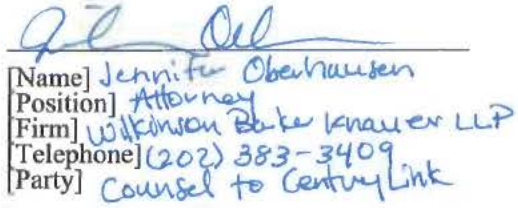 [Name] Jennifer Oberhausen
[Position] Attorney
[Firm] Wilkinson Barker Knauer LLP
[Telephone] (202) 383-3409
[Party] Counsel to CenturyLink